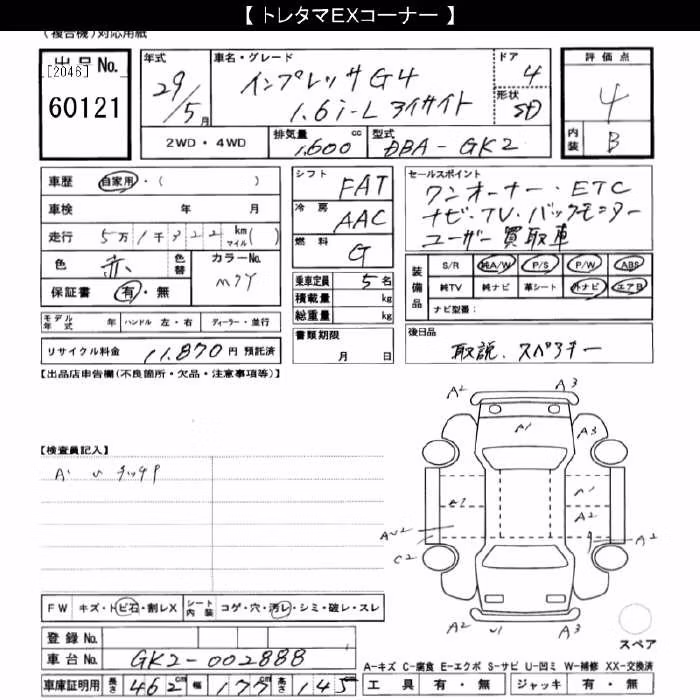 【 トレタマEXコーナー 】
(複合機)対応用紙
出品No.
[2046]
60121
年式
29/5月
車名・グレード
インプレッサ G4
1.6i-L アイサイト
ドア
4
形状
SD
評価点
4
内装
B
2WD・4WD
排気量
1,600 cc
型式
DBA-GK2
車歴 自家用・( )
車検 年 月
走行 5万1千322 km マイル( )
色 赤 色替
カラーNo.
M7Y
保証書 有・無
シフト FAT
冷房 AAC
燃料 G
乗車定員 5名
積載量 kg
総重量 kg
書類期限
月 日
セールスポイント
ワンオーナー・ETC
ナビ・TV・バックモニター
ユーザー買取車
装備品
S/R 純A/W P/S P/W ABS
純TV 純ナビ 革シート 外ナビ エアB
ナビ型番:
モデル年式 年 ハンドル 左・右 ディーラー・並行
リサイクル料金 11,870 円 預託済
後日品
取説、スペアキー
【出品店申告欄(不良箇所・欠品・注意事項等)】
【検査員記入】
A2 A3
A1 A3
A1
A2
A2
C2
A2
A2 U1 A3
スペア
FW キズ・トビ石・割レX シート内装 コゲ・穴・汚レ・シミ・破レ・スレ
登録No.
車台No. GK2-002888
車庫証明用 長さ 462cm 幅 177cm 高さ 145cm
A-キズ C-腐食 E-エクボ S-サビ U-凹ミ W-補修 XX-交換済
工具 有・無 ジャッキ 有・無